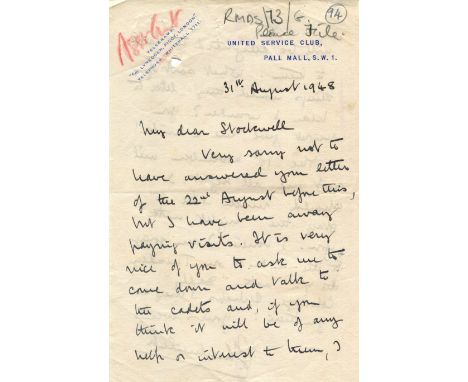 RMDS/73/G.
94
Please File
UNITED SERVICE CLUB,
PALL MALL, S.W. 1.
31st August 1948
My dear Stockwell
Very sorry not to
have answered your letter
of the 22nd August before this,
but I have been away
paying visits. It is very
nice of you to ask me to
come down and talk to
the cadets and, if you
think it will be of any
help or interest to them, I